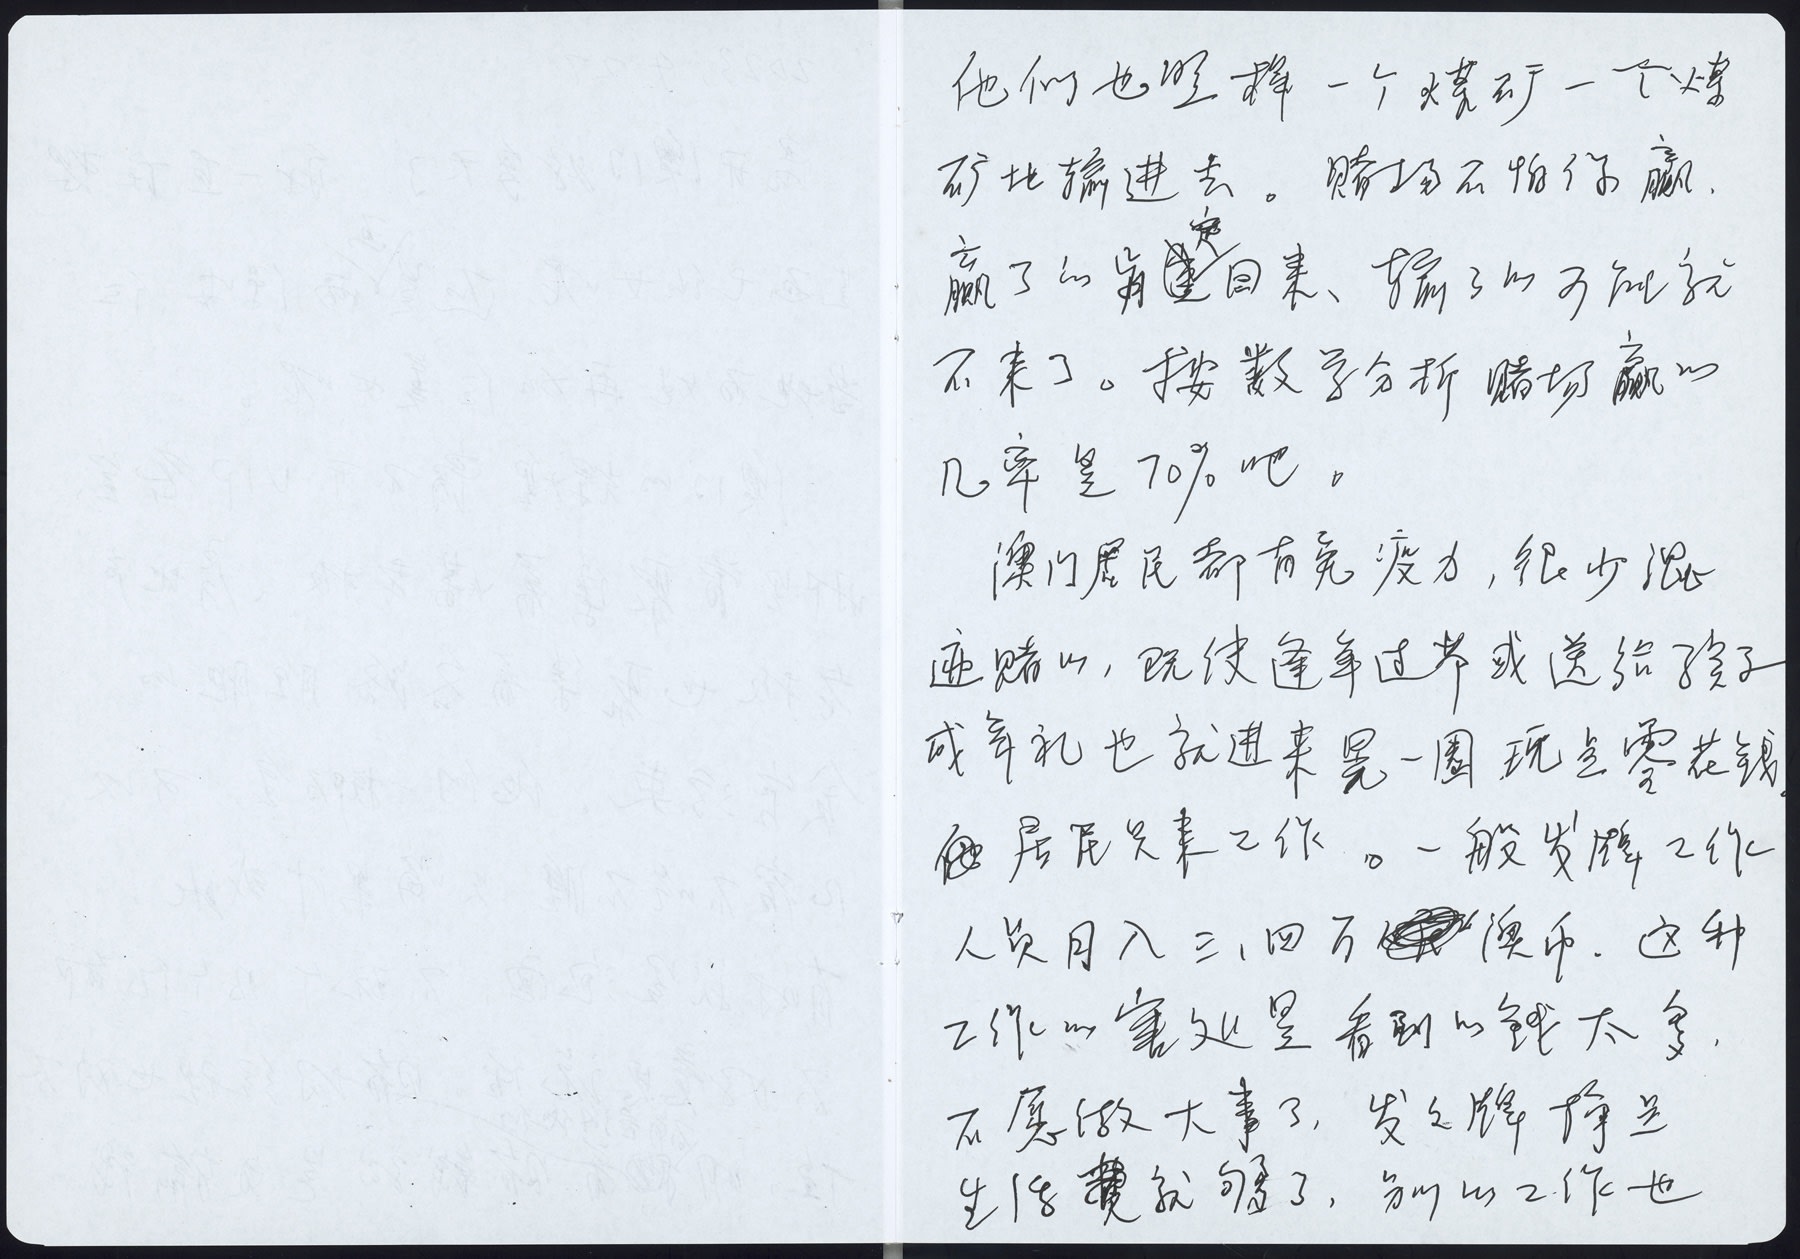 他们也照样一个煤矿一个煤
矿地输进去。赌场不怕你赢,
赢了的肯定回来、输了的可能就
不来了。按数学分析赌场赢的
几率是70%吧。
澳门居民都有免疫力,很少混
迹赌的,既使逢年过节或送给孩子
成年礼也就进来晃一圈玩点零花钱。
居民只来工作。一般发牌工作
人员月入三、四万澳币.这种
工作的害处是看到的钱太多,
不愿做大事了,发发牌挣点
生活费就够了,别的工作也